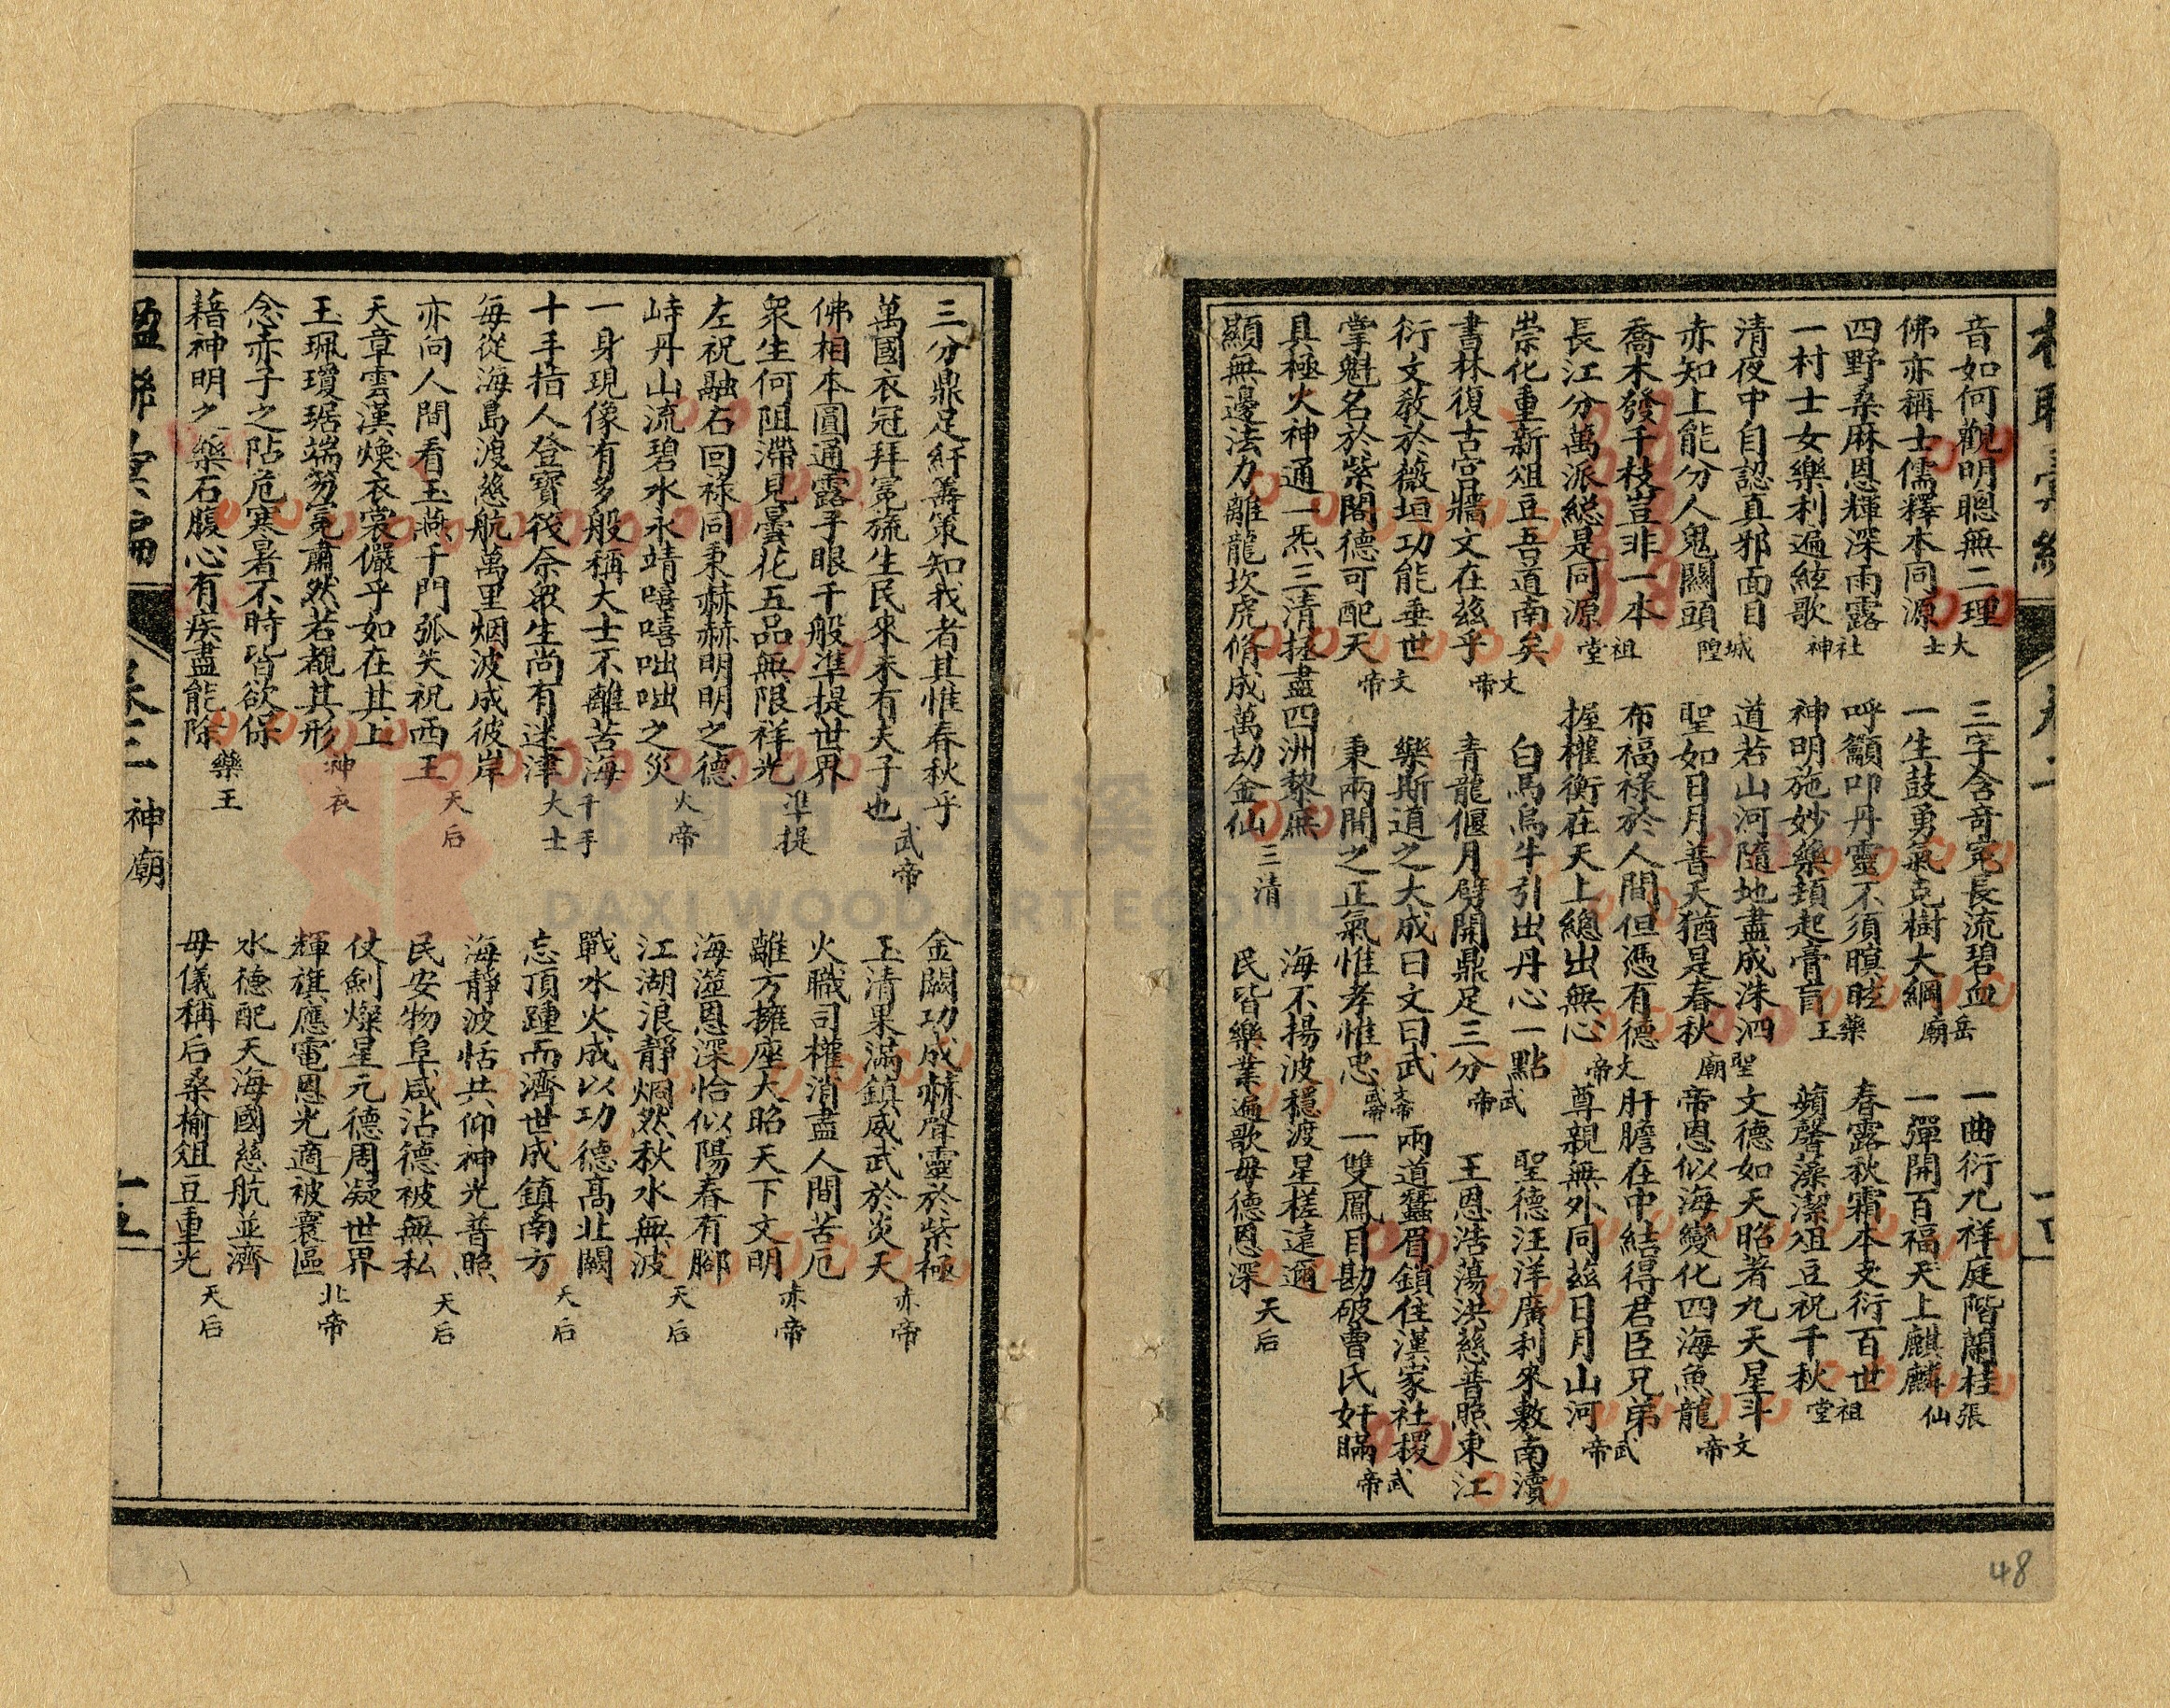 音如何觀明聰無二理
佛亦稱士儒釋本同源 大士
四野桑麻恩輝深雨露
一村士女樂利遍絃歌 社神
清夜中自認真邪面目
赤知上能分人鬼關頭 城隍
喬木發千枝豈非一本
長江分萬派総是同源 祖堂
崇化重新俎豆吾道南矣
書林復古宮牆文在茲乎 文帝
衍文敎於薇垣功能垂世
掌魁名於紫閣德可配天 文帝
具極火神通一炁三清拯盡四洲黎庶
顯無邊法力離龍坎虎脩成萬劫金仙 三清
三字含奇寃長流碧血
一生鼓勇氣克樹大綱 岳廟
呼籲叩丹靈不須瞑眩
神明施妙藥頚起膏肓 藥王
道若山河隨地盡成洙泗
聖如日月普天猶是春秋 聖廟
布福祿於人間但憑有德
握權衡在天上總出無心 文帝
白馬烏牛引出丹心一點
青龍偃月劈開鼎足三分 武帝
樂斯道之大成曰文曰武
秉兩間之正氣惟孝惟忠 文帝武帝
海不揚波穩渡星槎遠邇
民皆樂業遍歌毋德恩深 天后
一曲衍九祥庭階蘭桂
一彈開百福天上麒麟 張仙
春露秋霜本支衍百世
蘋馨藻潔俎豆祝千秋 祖堂
文德如天昭著九天星斗
帝恩似海變化四海魚龍 文帝
肝膽在中結得君臣兄弟
尊親無外同茲日月山河 武帝
聖德汪洋廣利來敷南瀆
王恩浩蕩洪慈普照東江
兩道蠶眉鎖住漢家社稷
一雙鳳目勘破曹氏奸瞞 武帝
卷二
48
三分鼎足紆籌策知我者其惟春秋乎
萬國衣冠拜冕旒生民來未有夫子也 武帝
佛相本圓通露手眼千般准提世界
衆生何阻滯見曇花五品無限祥光 准提
左祝融右回祿同秉赫赫明明之德
峙丹山流碧水永靖嘻嘻咄咄之災 火帝
一身現像有多般稱大士不離苦海
十手指人登寶筏奈衆生尚有迷津 千手大士
每從海島渡慈航萬里烟波成彼岸
亦向人間看玉燕千門弧矢祝西王 天后
天章雲漢煥衣裳儼乎如在其上
玉珮瓊琚端笏冕肅然若覩其形 神衣
念赤子之阽危寒暑不時皆欲保
藉神明之藥石腹心有疾盡能除 藥王
金闕功成赫聲靈於紫極
玉清果滿鎮威武於炎天 赤帝
火職司權消盡人間苦厄
離方擁座大昭天下文明 赤帝
海澨恩深恰似陽春有腳
江湖浪靜炯然秋水無波 天后
戰水火成以功德髙北闕
忘頂踵而濟世成鎮南方 天后
海靜波恬共仰神光普照
民安物阜咸沾德被無私 天后
仗劍燦星元德周凝世界
輝旗應電恩光適被寰區 北帝
水德配天海國慈航並濟
毋儀稱后桑榆俎豆重光 天后
楹聯彙編
卷二 神廟
十五